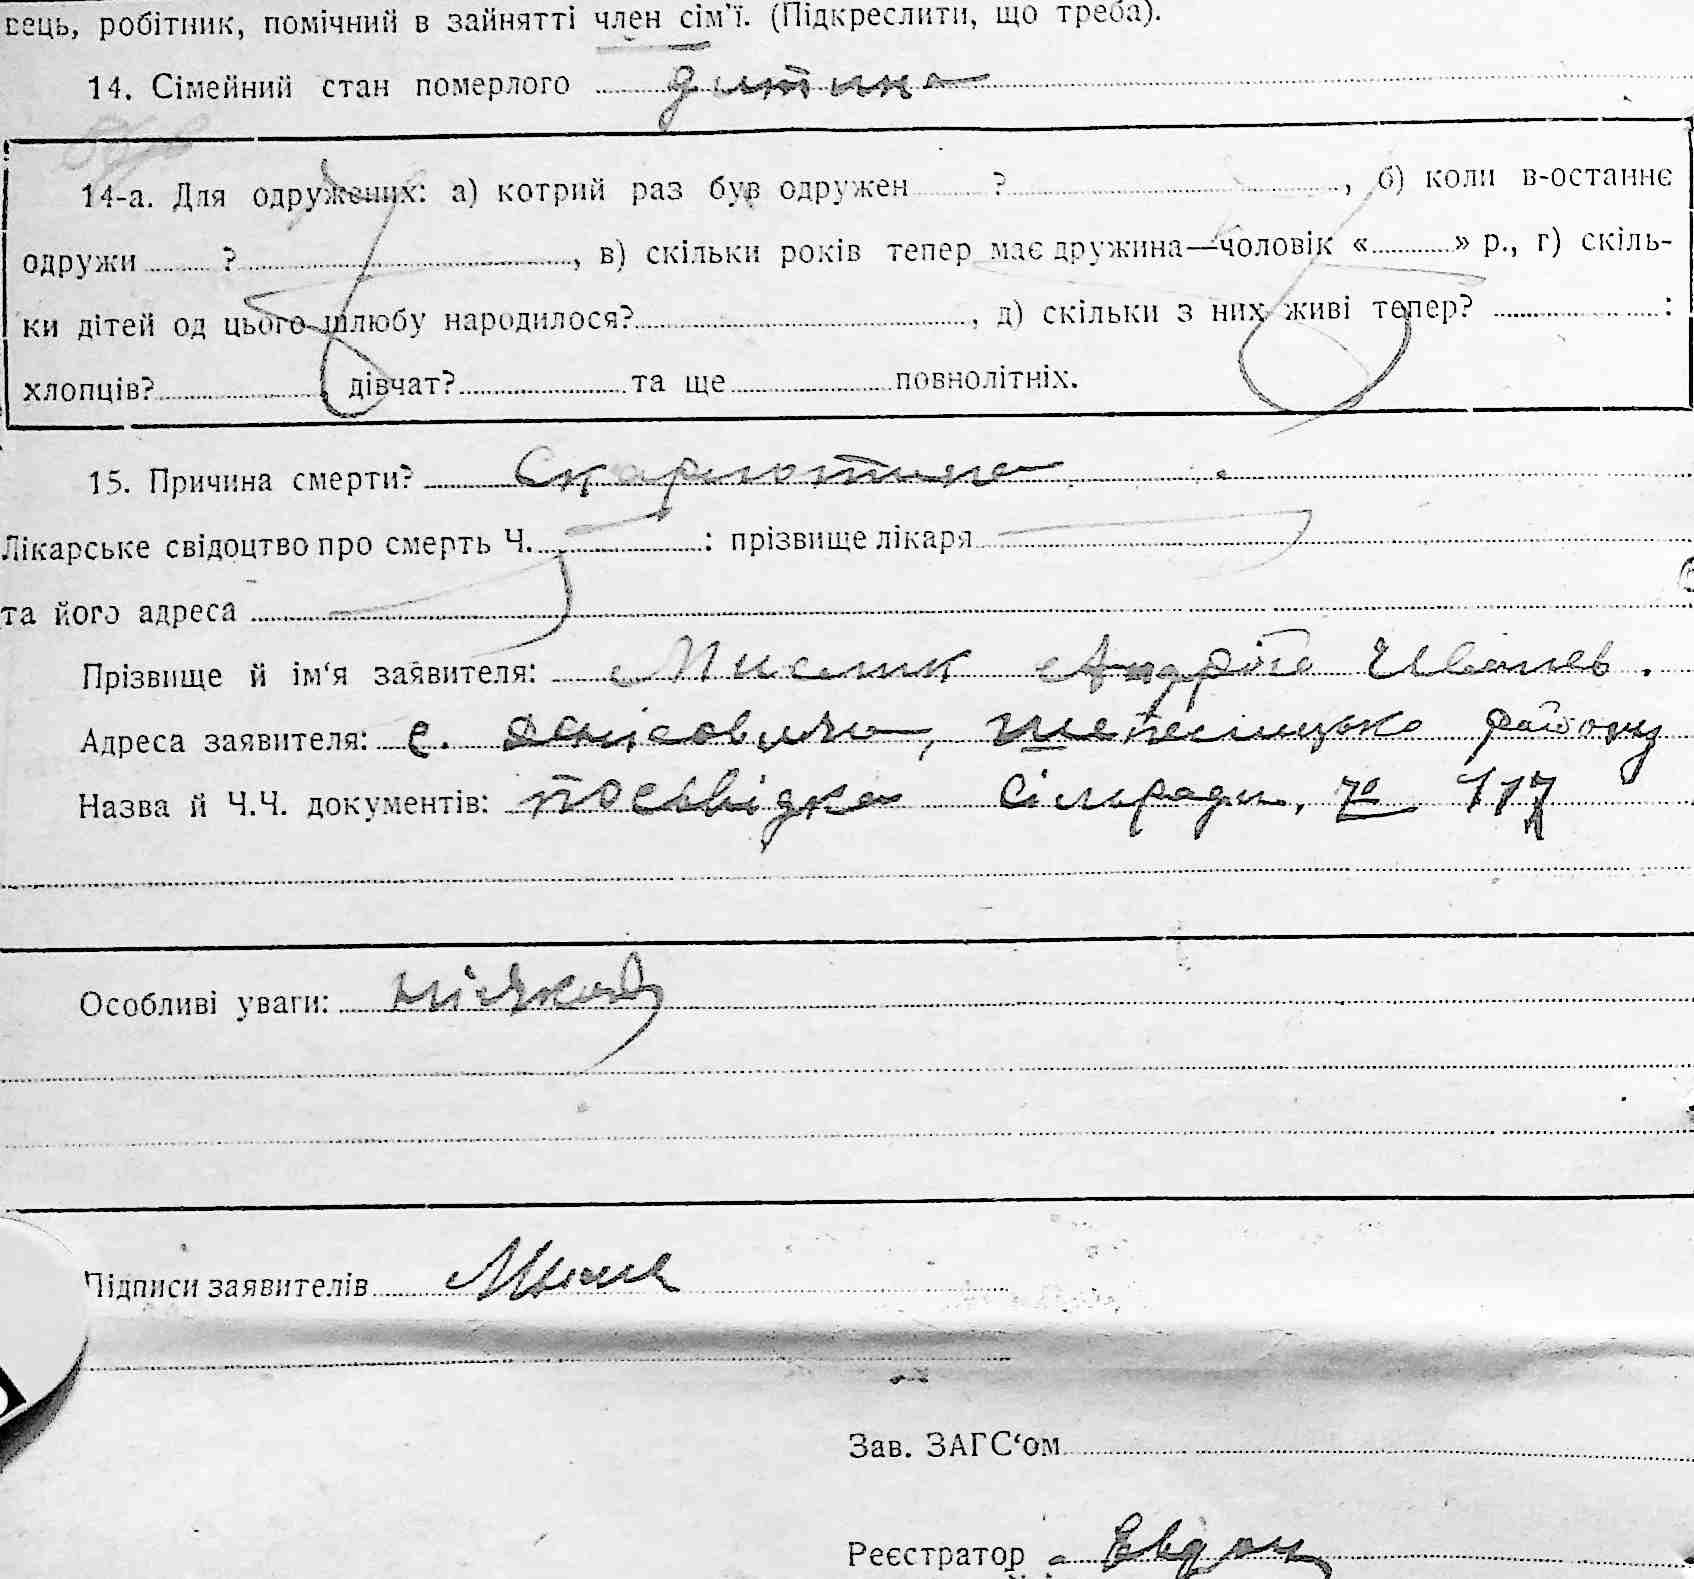 вець, робітник, помічний в зайнятті член сім'ї. (Підкреслити, що треба).
14. Сімейний стан померлого дитина
14-а. Для одружених: а) котрий раз був одружен ? , б) коли в-останнє
одружи ? , в) скільки років тепер має дружина—чоловік « » р., г) скіль-
ки дітей од цього шлюбу народилося? , д) скільки з них живі тепер? :
хлопців? , дівчат? та ще повнолітніх.
15. Причина смерти? Скарлотина
Лікарське свідоцтво про смерть Ч. : прізвище лікаря
та його адреса
Прізвище й ім'я заявителя: Мисник Андрій Іванов.
Адреса заявителя: с. Денисовичи, району
Назва й Ч.Ч. документів: посвідка сільради, 117
Особливі уваги:
Підписи заявителів
Зав. ЗАГС'ом
Реєстратор